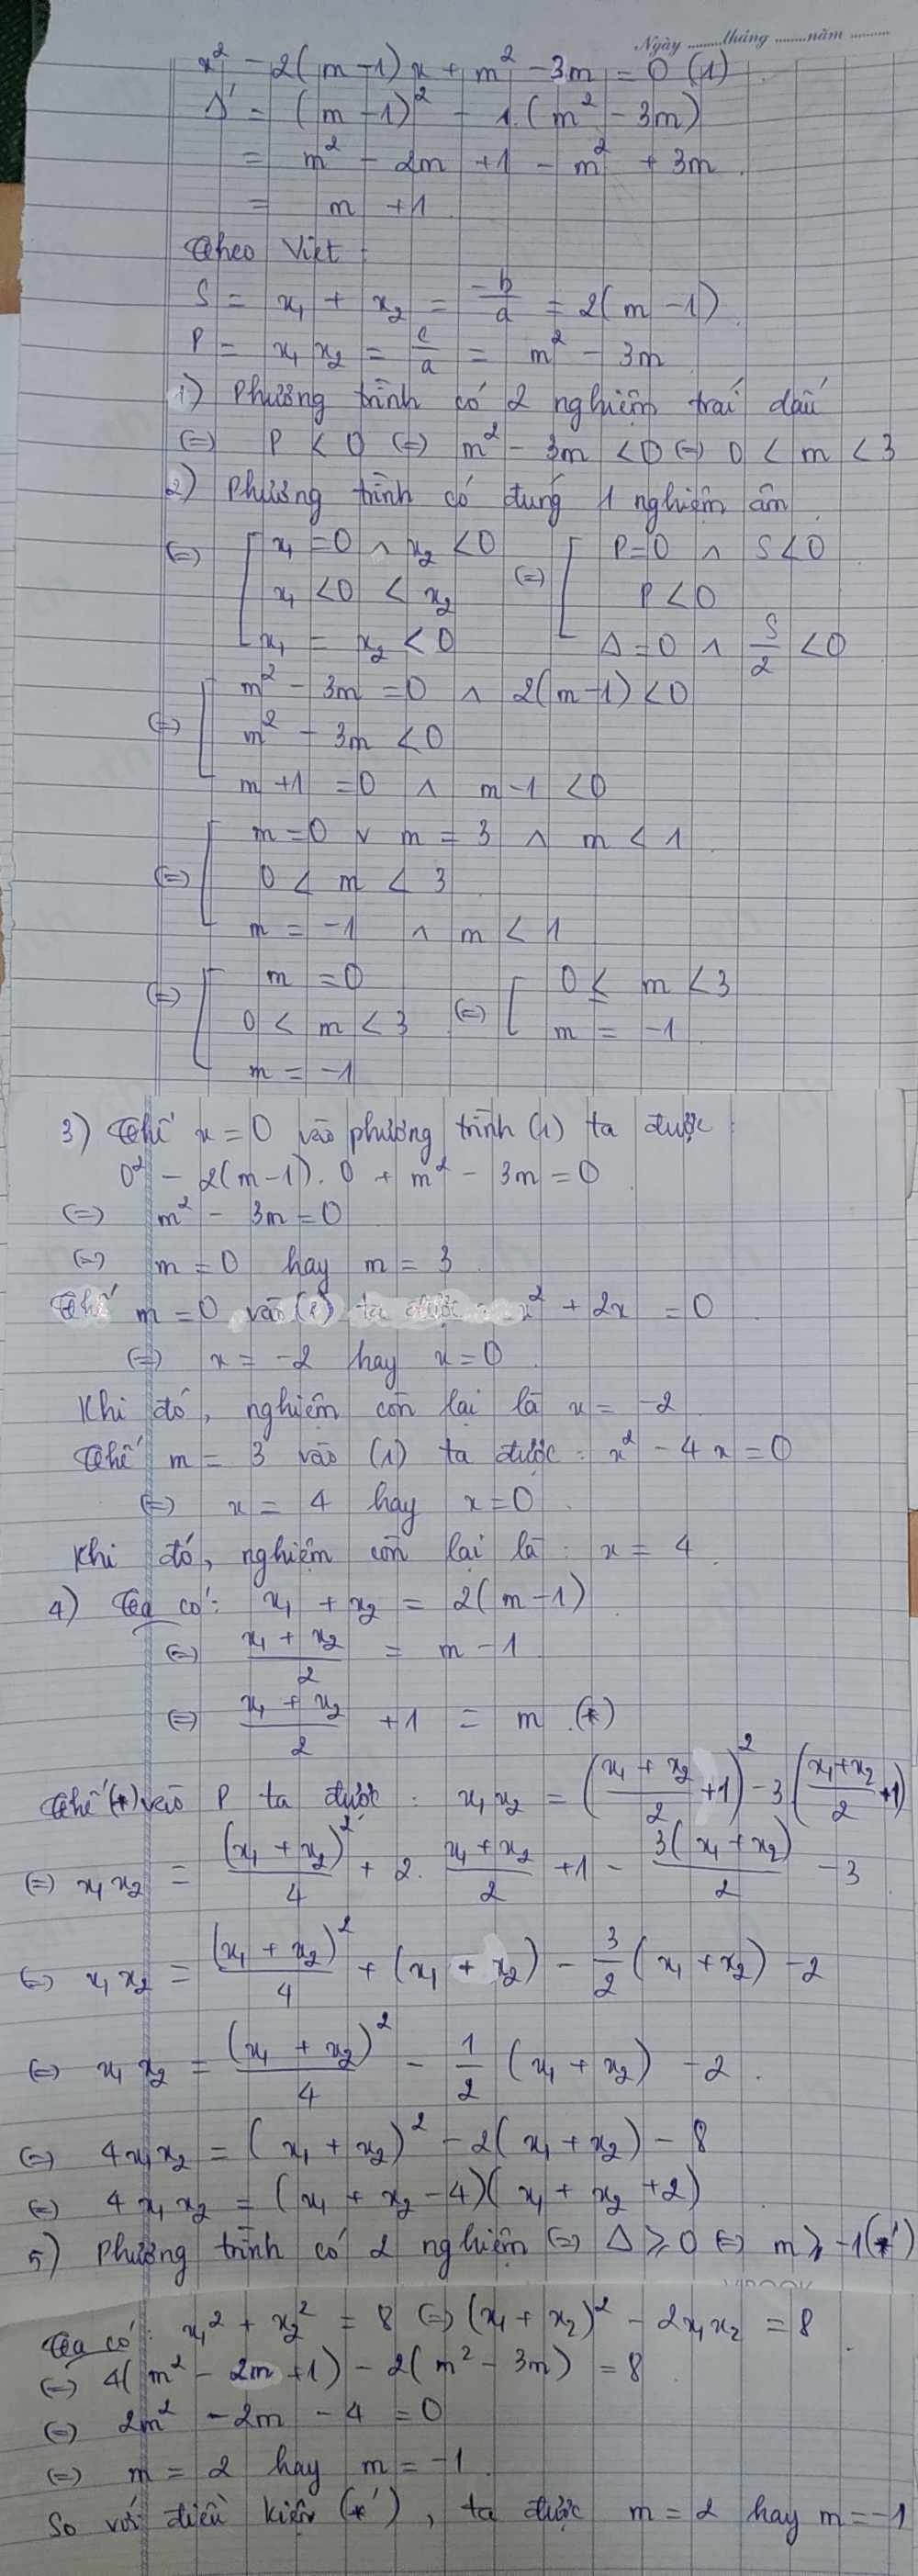 Ngày ........tháng ........năm .........
x² - 2(m-1)x + m² - 3m = 0 (1)
Δ' = (m-1)² - 1.(m² - 3m)
= m² - 2m + 1 - m² + 3m
= m + 1
Theo Viet :
S = x₁ + x₂ = -b/a = 2(m-1)
P = x₁x₂ = c/a = m² - 3m
1) Phương trình có 2 nghiệm trái dấu
(=) P < 0 (=) m² - 3m < 0 (=) 0 < m < 3
2) Phương trình có đúng 1 nghiệm âm
(=) [ x₁ = 0 ∧ x₂ < 0 (=) [ P = 0 ∧ S < 0
x₁ < 0 < x₂ P < 0
x₁ = x₂ < 0 Δ = 0 ∧ S/2 < 0
(=) [ m² - 3m = 0 ∧ 2(m-1) < 0
m² - 3m < 0
m + 1 = 0 ∧ m - 1 < 0
(=) [ m = 0 ∨ m = 3 ∧ m < 1
0 < m < 3
m = -1 ∧ m < 1
(=) [ m = 0 (=) [ 0 ≤ m < 3
0 < m < 3 m = -1
m = -1
3) Thế x = 0 vào phương trình (1) ta được :
0² - 2(m-1).0 + m² - 3m = 0
(=) m² - 3m = 0
(=) m = 0 hay m = 3
Thế m = 0 vào (1) ta được : x² + 2x = 0
(=) x = -2 hay x = 0
Khi đó, nghiệm còn lại là x = -2
Thế m = 3 vào (1) ta được : x² - 4x = 0
(=) x = 4 hay x = 0
Khi đó, nghiệm còn lại là : x = 4
4) Ta có : x₁ + x₂ = 2(m-1)
(=) (x₁ + x₂)/2 = m - 1
(=) (x₁ + x₂)/2 + 1 = m (*)
Thế (*) vào P ta được : x₁x₂ = ((x₁ + x₂)/2 + 1)² - 3((x₁ + x₂)/2 + 1)
(=) x₁x₂ = (x₁ + x₂)²/4 + 2.(x₁ + x₂)/2 + 1 - 3(x₁ + x₂)/2 - 3
(=) x₁x₂ = (x₁ + x₂)²/4 + (x₁ + x₂) - 3/2 (x₁ + x₂) - 2
(=) x₁x₂ = (x₁ + x₂)²/4 - 1/2 (x₁ + x₂) - 2.
(=) 4x₁x₂ = (x₁ + x₂)² - 2(x₁ + x₂) - 8
(=) 4x₁x₂ = (x₁ + x₂ - 4)(x₁ + x₂ + 2)
5) Phương trình có 2 nghiệm (=) Δ ≥ 0 (=) m ≥ -1 (*')
Ta có : x₁² + x₂² = 8 (=) (x₁ + x₂)² - 2x₁x₂ = 8
(=) 4(m² - 2m + 1) - 2(m² - 3m) = 8
(=) 2m² - 2m - 4 = 0
(=) m = 2 hay m = -1
So với điều kiện (*'), ta được m = 2 hay m = -1